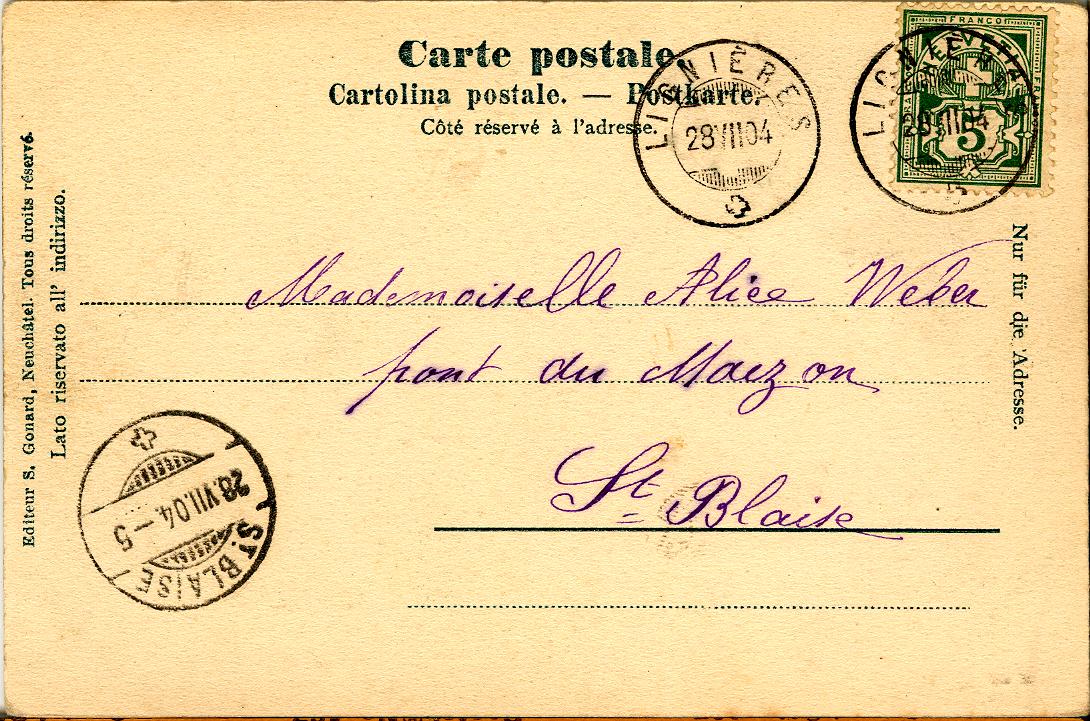 Carte postale.
Cartolina postale. — Postkarte.
Côté réservé à l'adresse.
LIGNIÈRES
28 VII 04
LIGNIÈRES
28 VII 04
FRANCO
HELVETIA
FRANCO
5
Nur für die Adresse.
Editeur S. Gonard, Neuchâtel. Tous droits réservé.
Lato riservato all' indirizzo.
Mademoiselle Alice Weber
pont du Maezon
St Blaise
28.VII.04.–5
ST. BLAISE